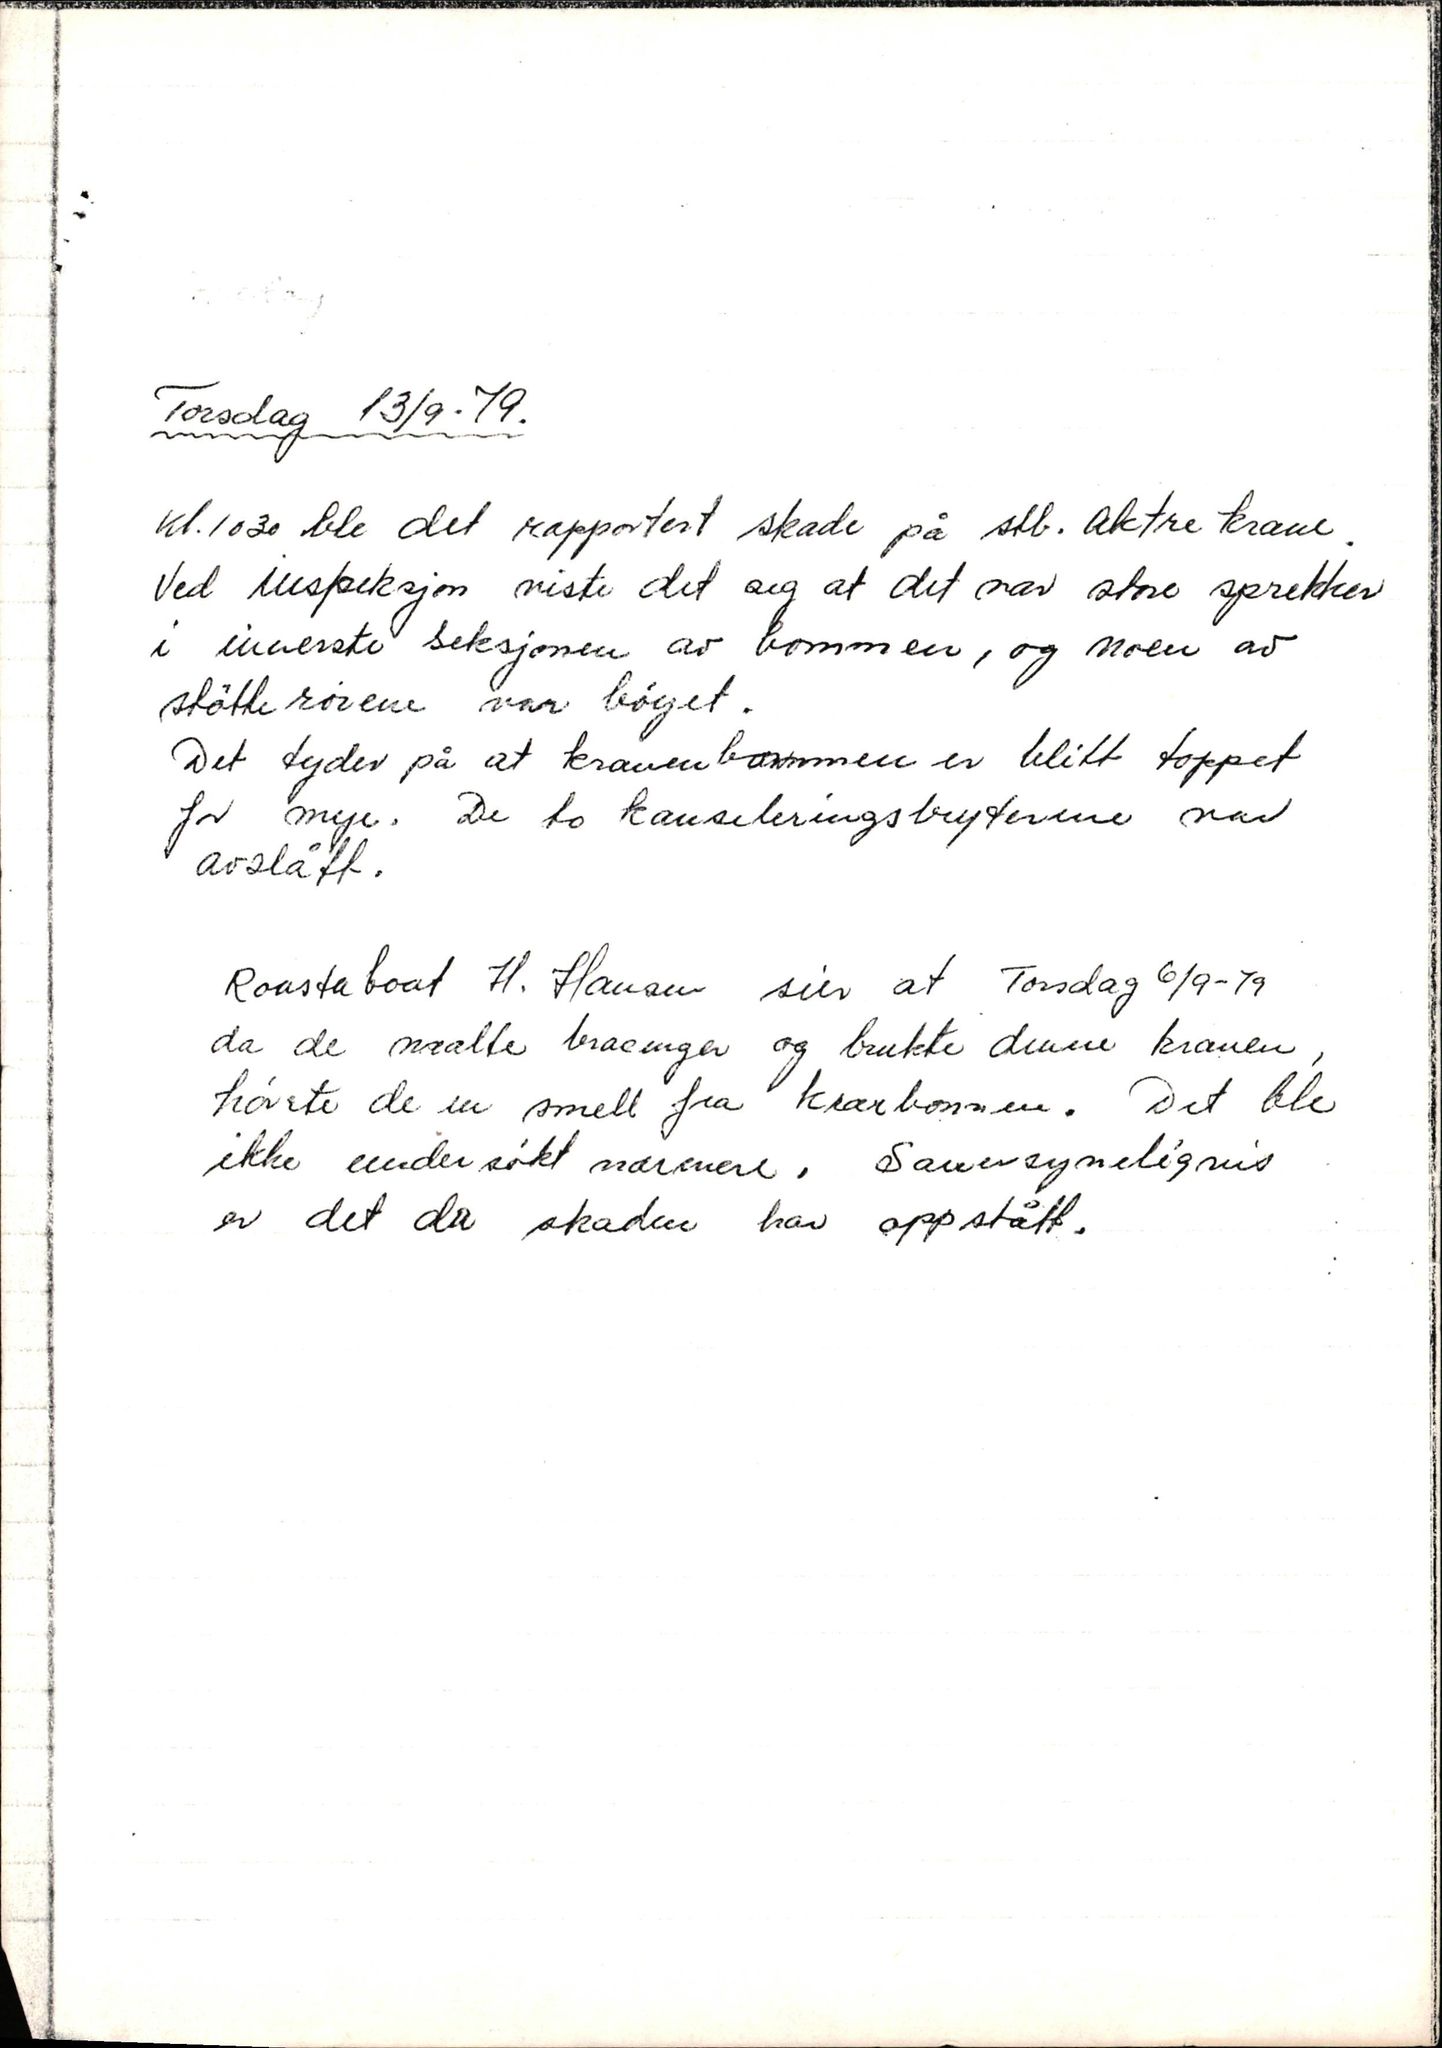 Torsdag 13/9-79.
Kl. 1030 ble det rapportert skade på stb. aktre krane.
Ved inspeksjon viste det seg at det var store sprekker
i innerste seksjonen av bommen, og noen av
stötte rörene var böyet.
Det tyder på at kranenbommen er blitt toppet
for mye. De to kanseleringsbryterene var
avslått.
Roustabout H. Hansen sier at Torsdag 6/9-79
da de malte bracinger og brukte denne kranen,
hörte de en smell fra kranbommen. Det ble
ikke undersökt nærmere. Sannsyneligvis
er det da skaden har oppstått.